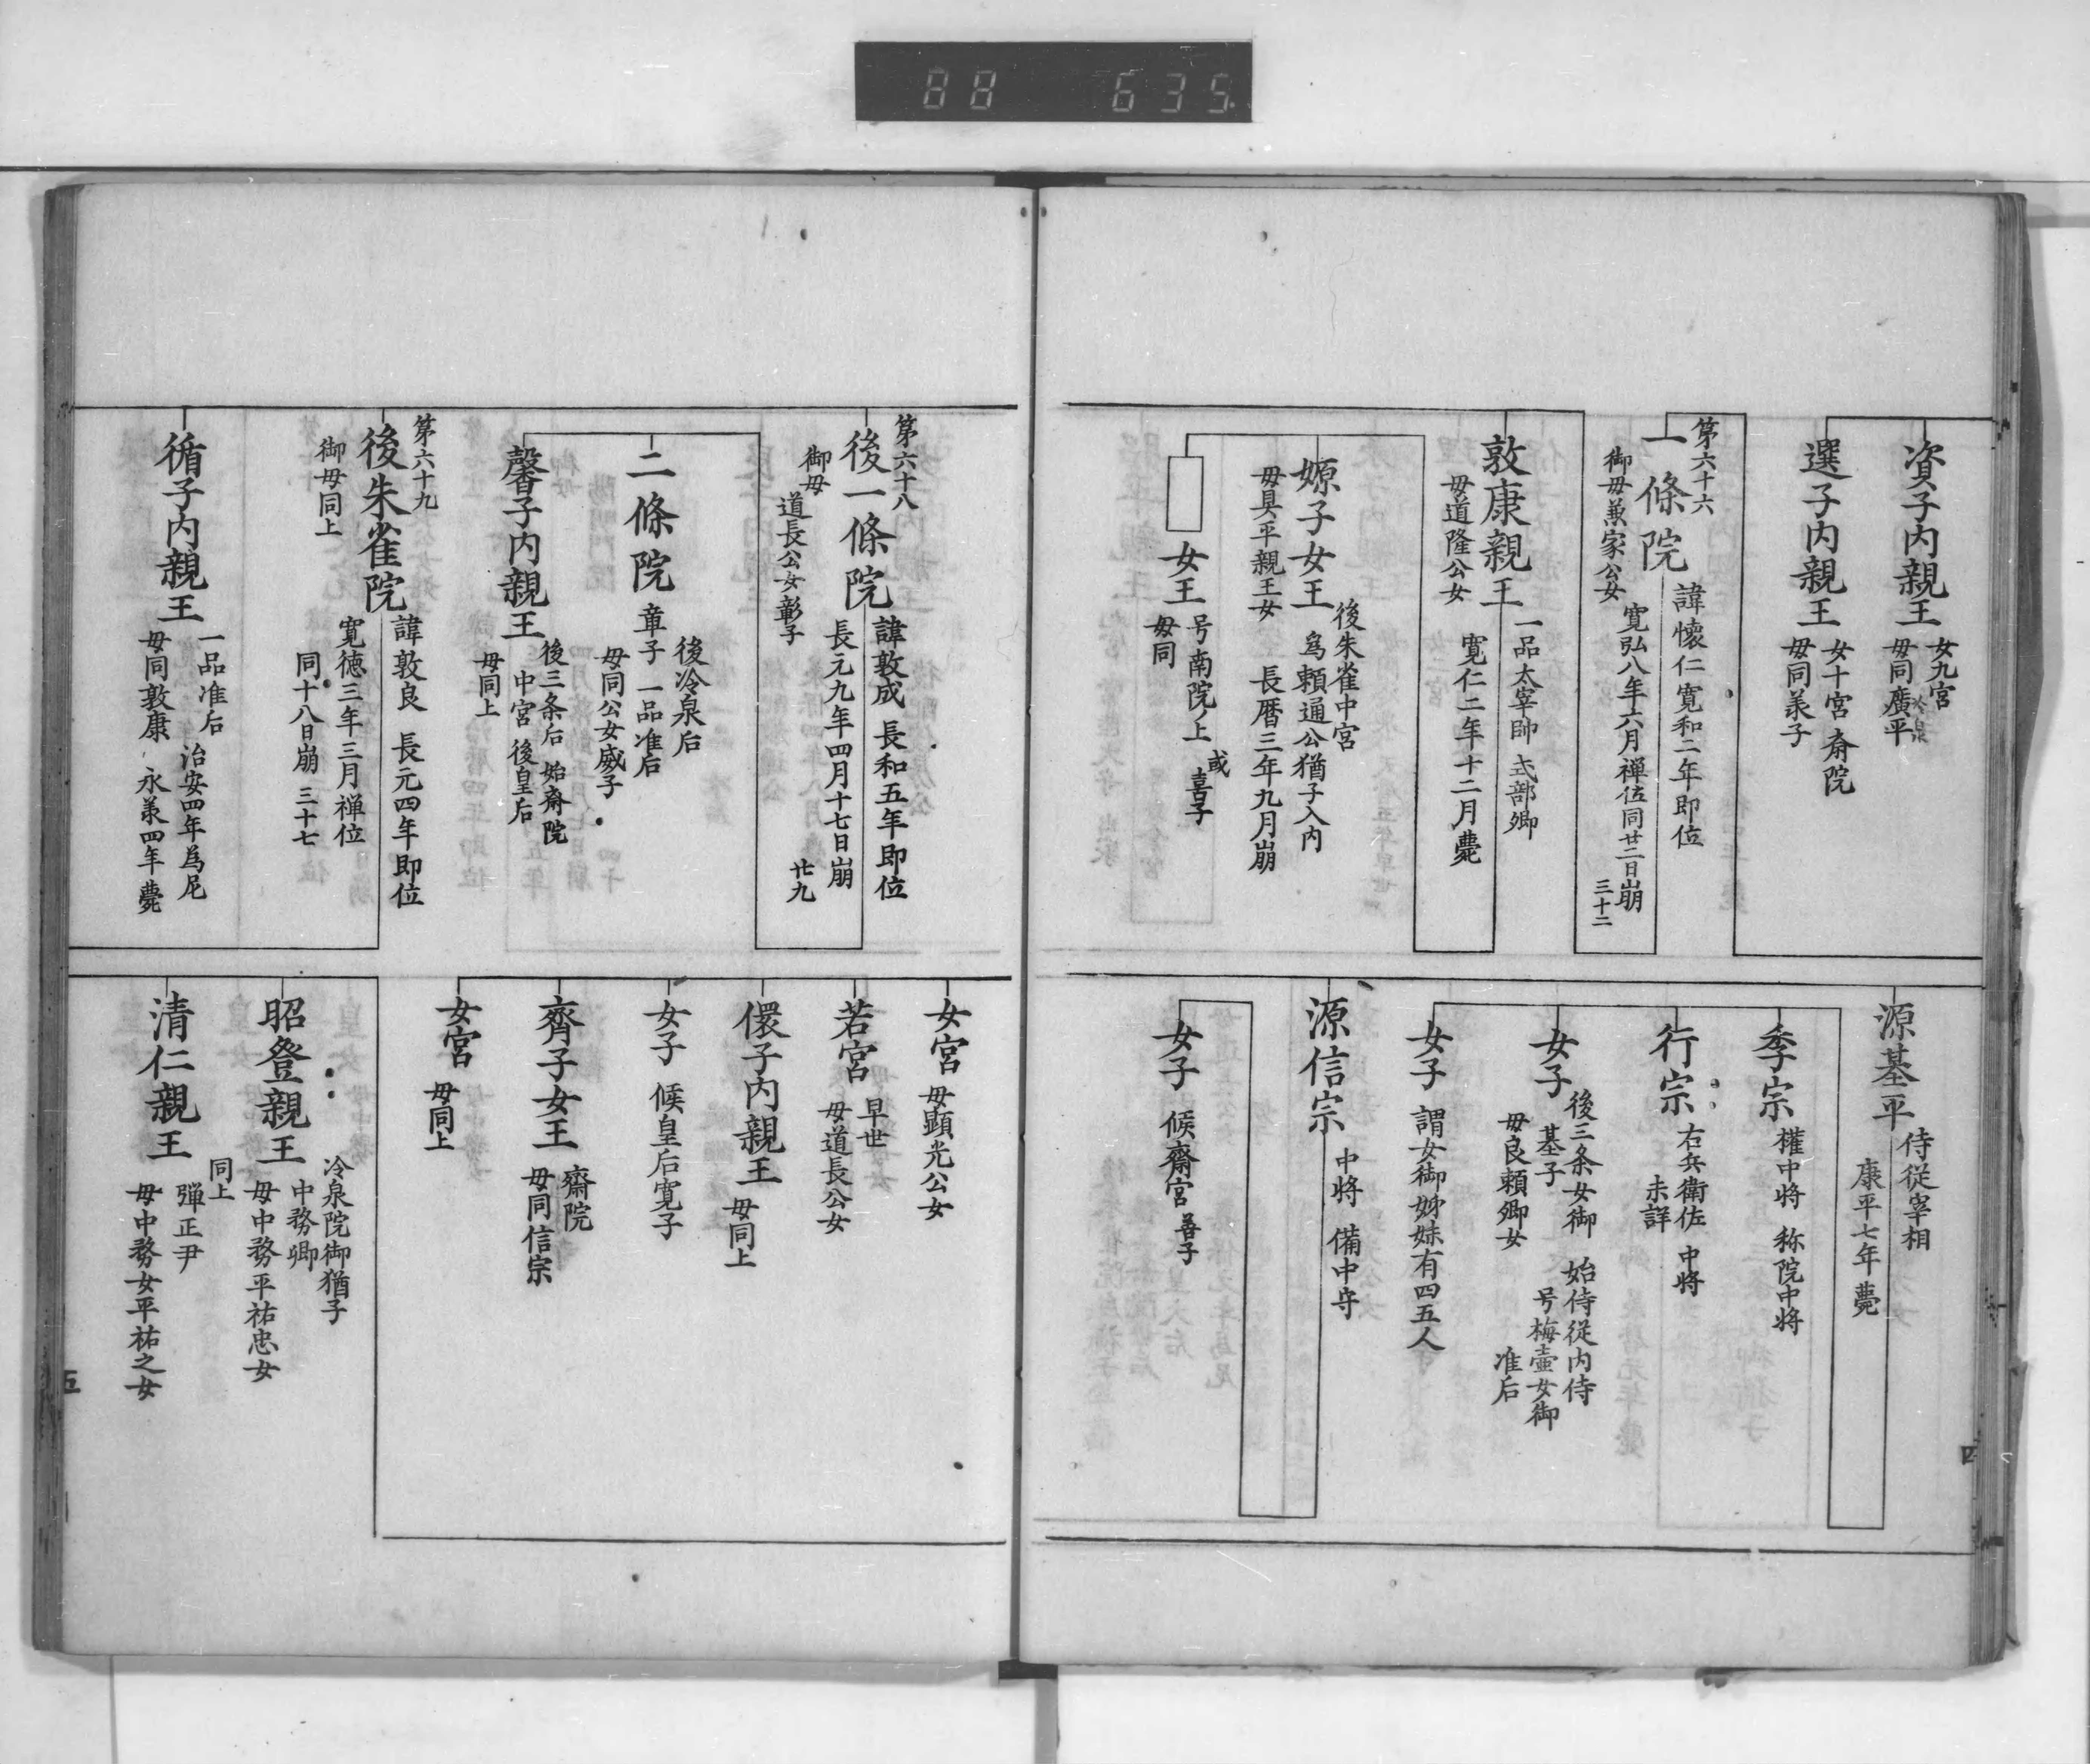 88 635
資子内親王
女九宮
母同廣平
選子内親王
女十宮 斎院
母同義子
第六十六
一條院
諱懐仁 寛和二年即位
寛弘八年六月禅位同廿二日崩
三十二
御母兼家公女
敦康親王
一品太宰帥 式部卿
寛仁二年十二月薨
母道隆公女
嫄子女王
後朱雀中宮
為頼通公猶子入内
長暦三年九月崩
母具平親王女
女王
号南院ノ上
或喜子
母同
源基平
侍從宰相
康平七年薨
季宗
權中将 称院中将
行宗
右兵衛佐 中将
未詳
女子
後三条女御 始侍從内侍
基子 号梅壷女御
母良頼卿女 准后
女子
謂女御姊妹有四五人
源信宗
中将 備中守
女子
候齋宮 善子
四
第六十八
後一條院
諱敦成 長和五年即位
長元九年四月十七日崩
廿九
御母
道長公女彰子
二條院
後冷泉后
章子 一品准后
母同公女威子
馨子内親王
後三条后 始斎院
中宮 後皇后
母同上
第六十九
後朱雀院
諱敦良 長元四年即位
寛徳三年三月禅位
同十八日崩 三十七
御母同上
脩子内親王
一品准后 治安四年為尼
母同敦康 永義四年薨
女宮
母顕光公女
若宮
早世
母道長公女
儇子内親王
母同上
女子
候皇后寛子
齊子女王
齋院
母同信宗
女宮
母同上
昭登親王
冷泉院御猶子
中務卿
母中務平祐忠女
清仁親王
同上
弾正尹
母中務女平祐之女
五